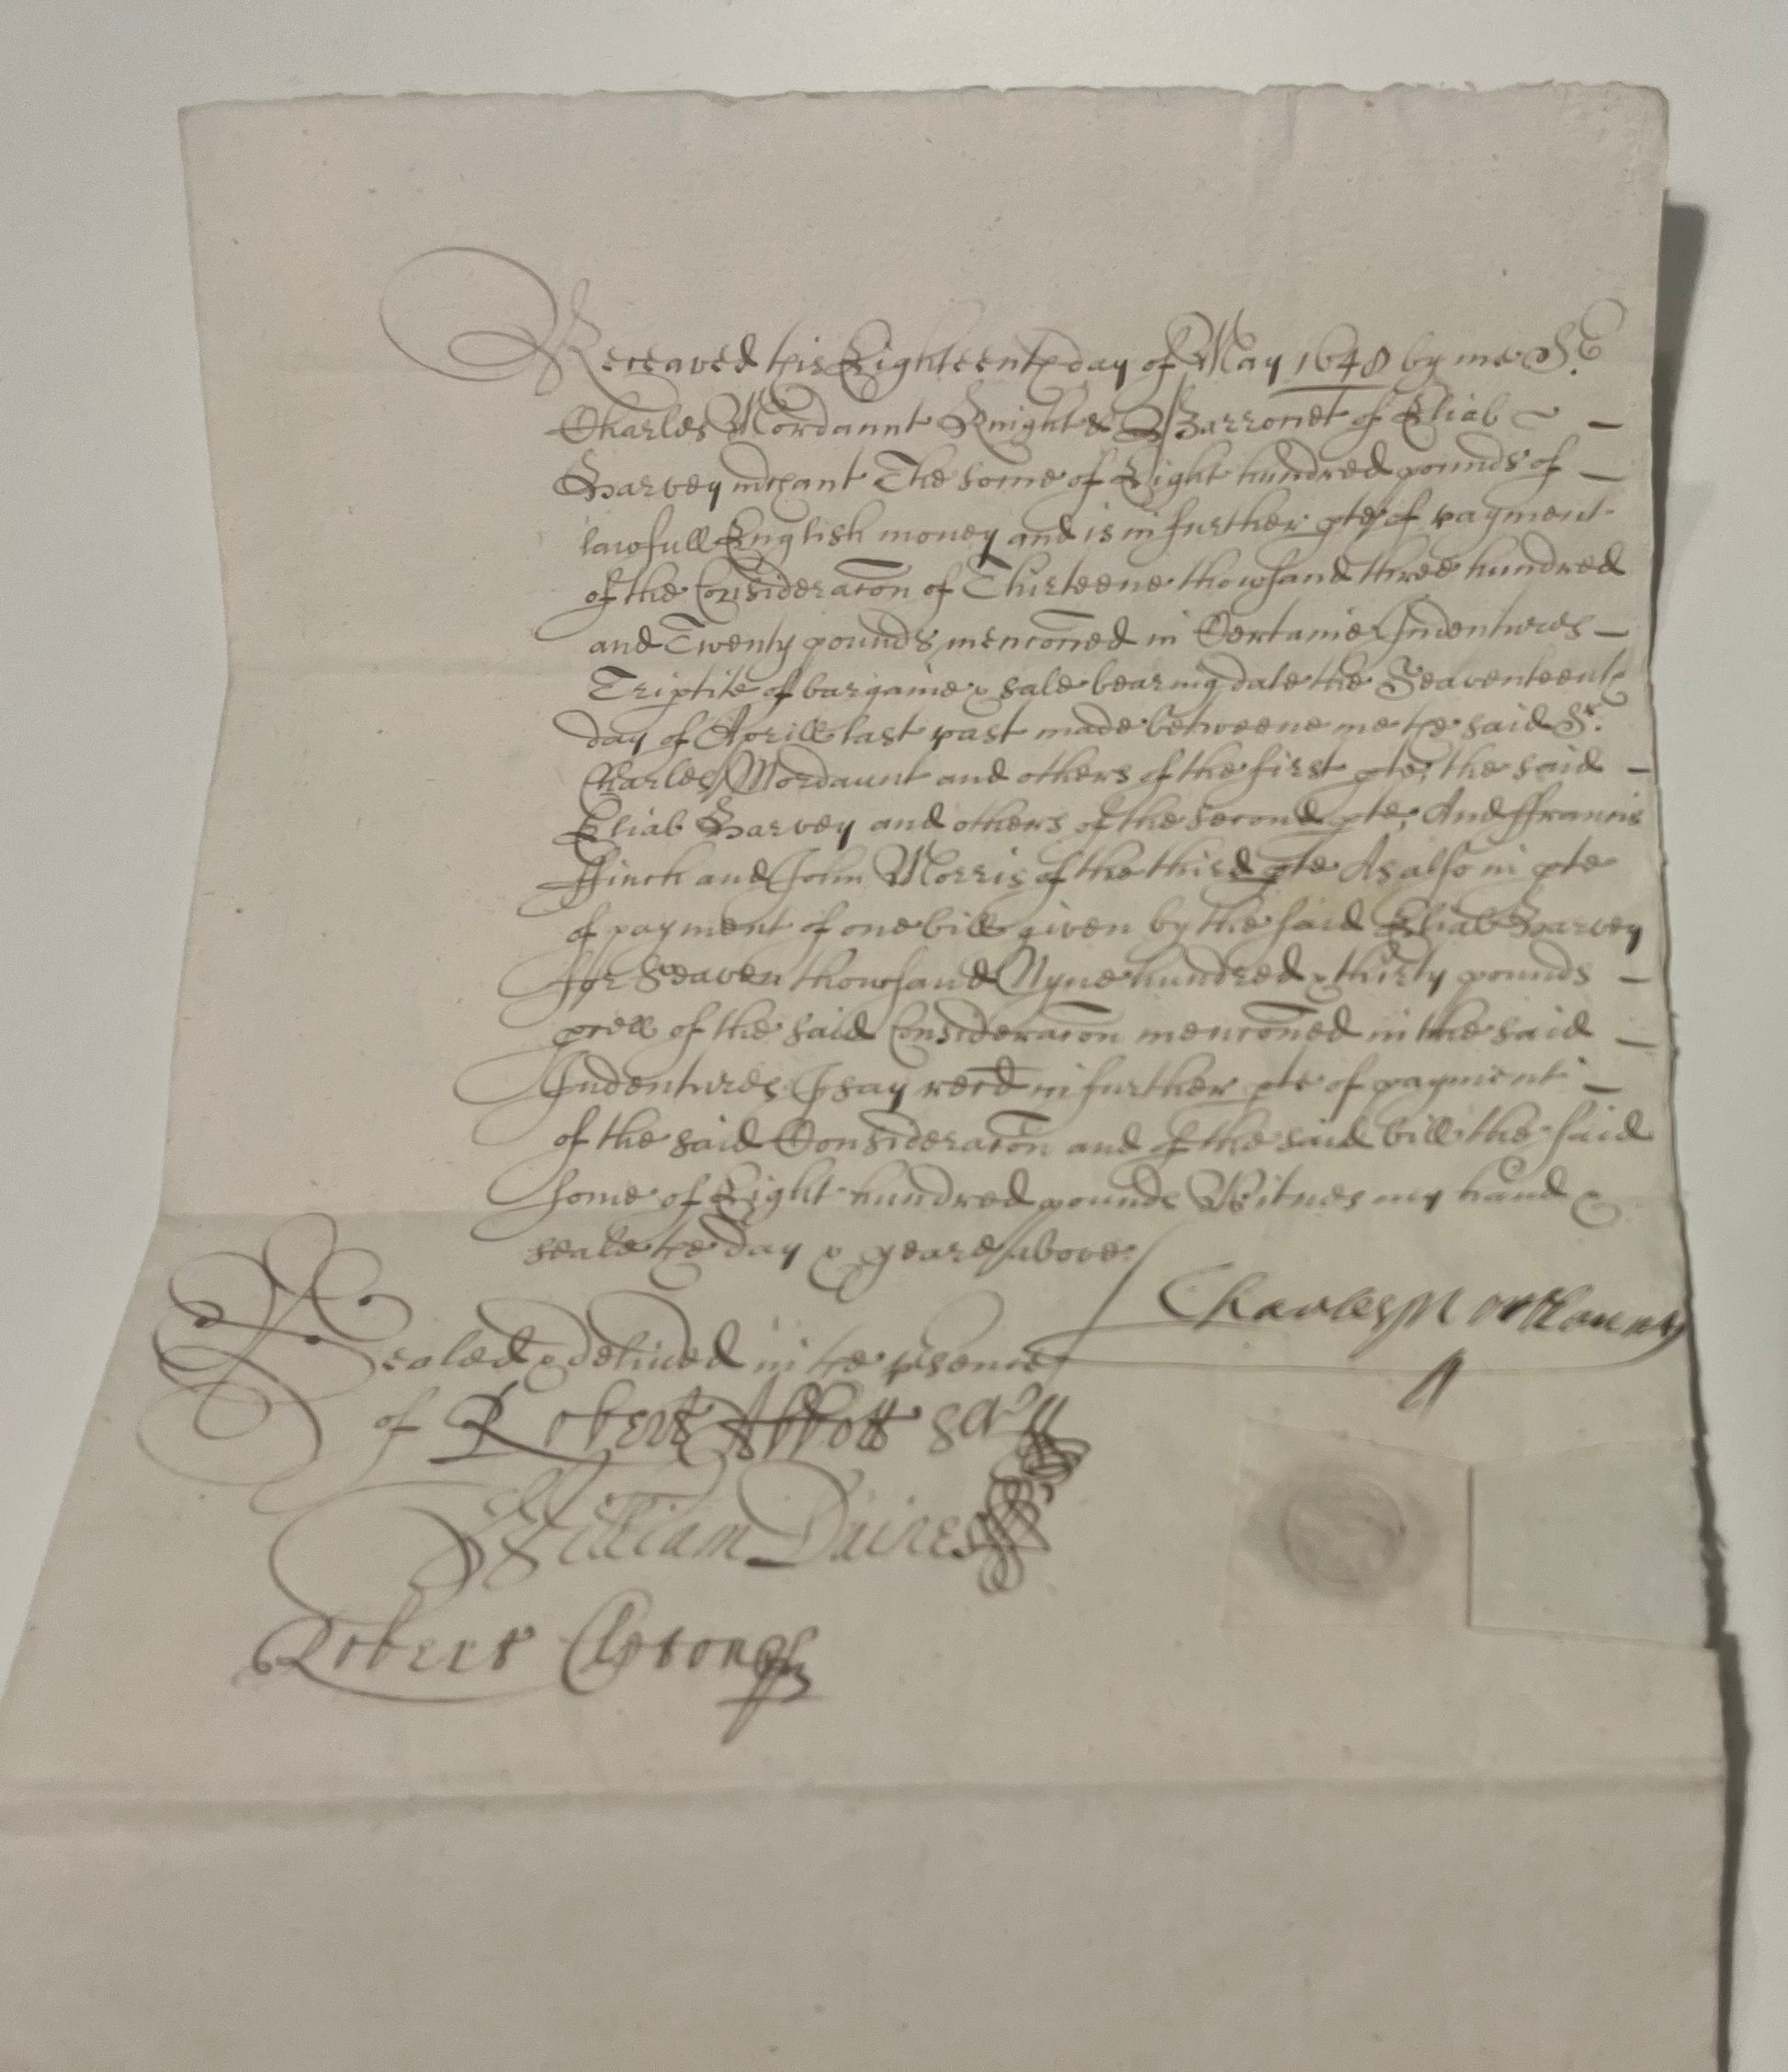 Receaved this Eighteenth day of May 1648 by me Sr.
Charles Mordaunt Knight & Barronet of Eliab
Harvey mrchant The some of Eight hundred pounds of
lawfull English money and is in further pte of payment
of the Consideracon of Thirteene thowsand three hundred
and Twenty pounds menconed in Certaine Indentures
Triptite of bargaine & sale bearing date the Seaventeenth
day of Aprill last past made betweene me the said Sr.
Charles Mordaunt and others of the first pte, the said
Eliab Harvey and others of the second pte, And ffrancis
ffinch and John Morris of the third pte As also in pte
of payment of one bill given by the said Eliab Harvey
for Seaven thowsand Nyne hundred & thirty pounds
pcell of the said Consideracon menconed in the said
Indentures I say recd in further pte of payment
of the said Consideracon and of the said bill the said
some of Eight hundred pounds Witnes my hand &
seale the day & yeare above:
Charles Mordaunt
Sealed & delived in the psence
of Robert Abbott Scr
William
Robert Clayton